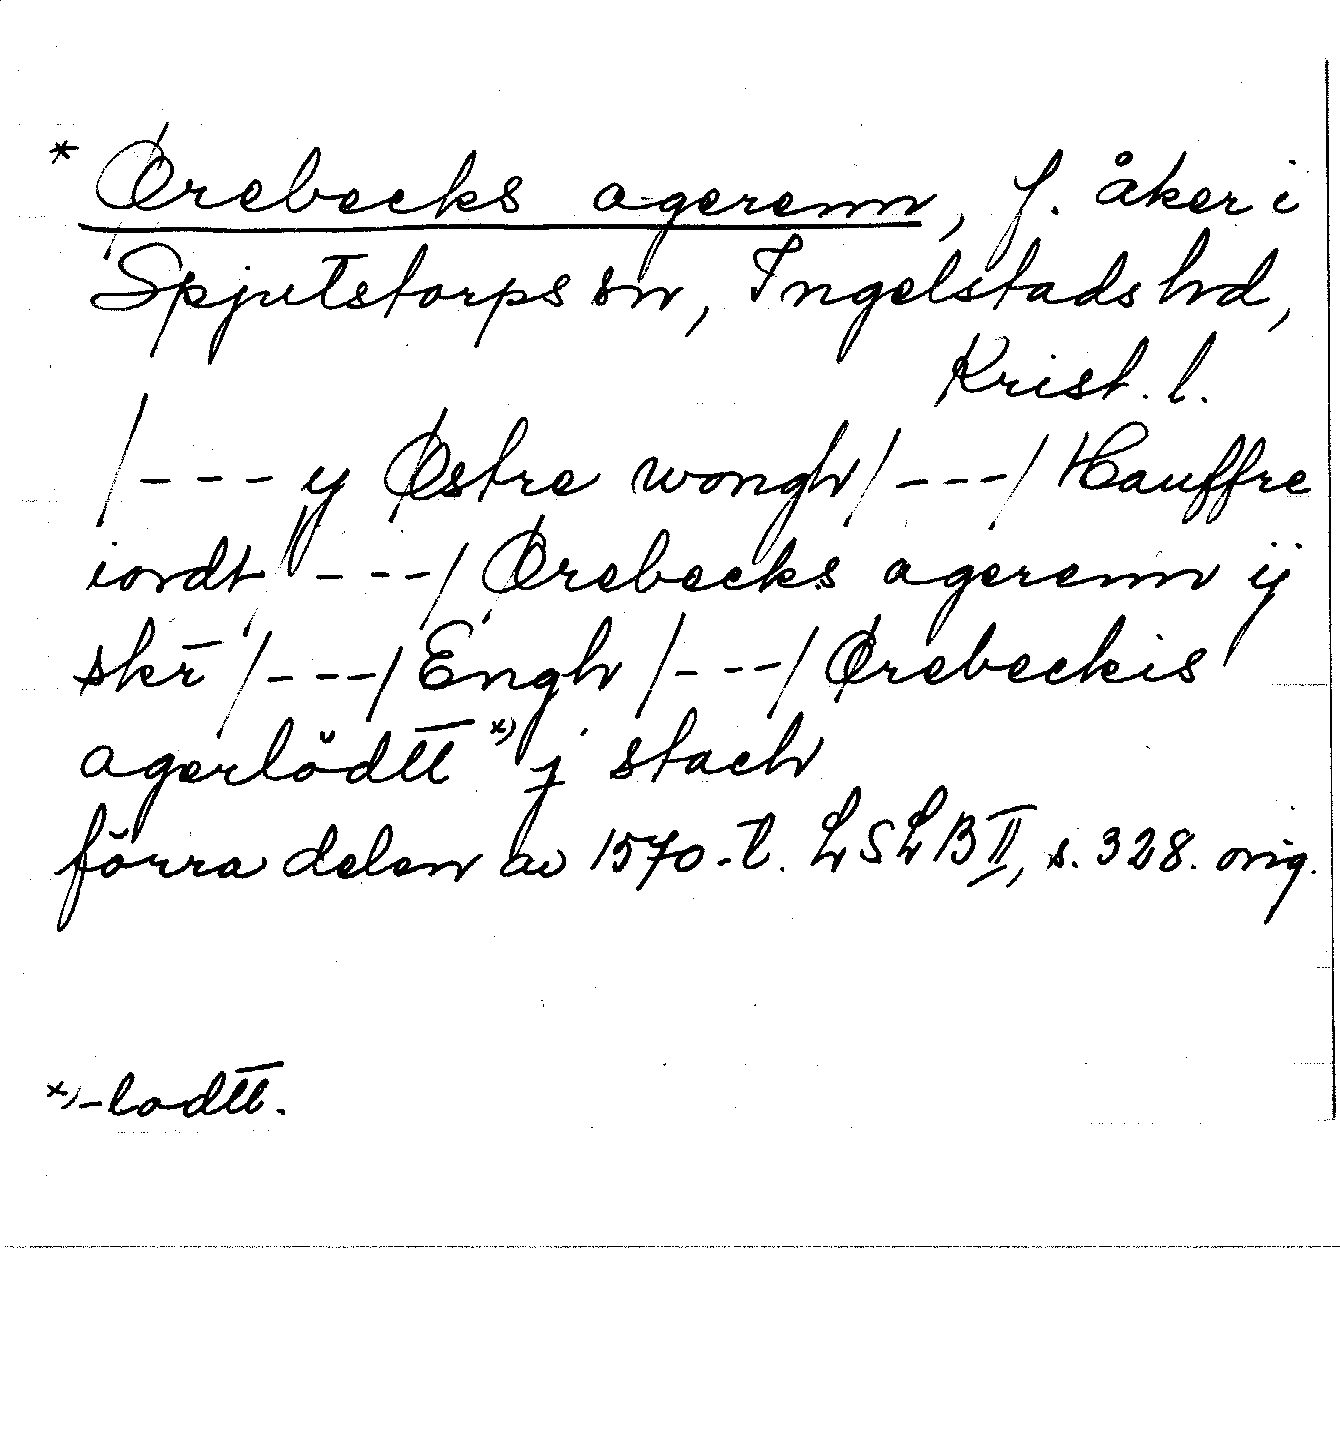 * Ørebecks agerenn, f. åker i
Spjutstorps sn, Ingelstads hd,
Krist. l.
/--- y Østre wongh/---/ Hauffre
iordt ---/ Ørebecks agerenn ij
skr̄ /---/ Engh /---/ Ørebeckis
agerlödt̄t̄ *) j stach
förra delen av 1570-t. LSLB II, s. 328. orig.
*) -lodt̄t̄.